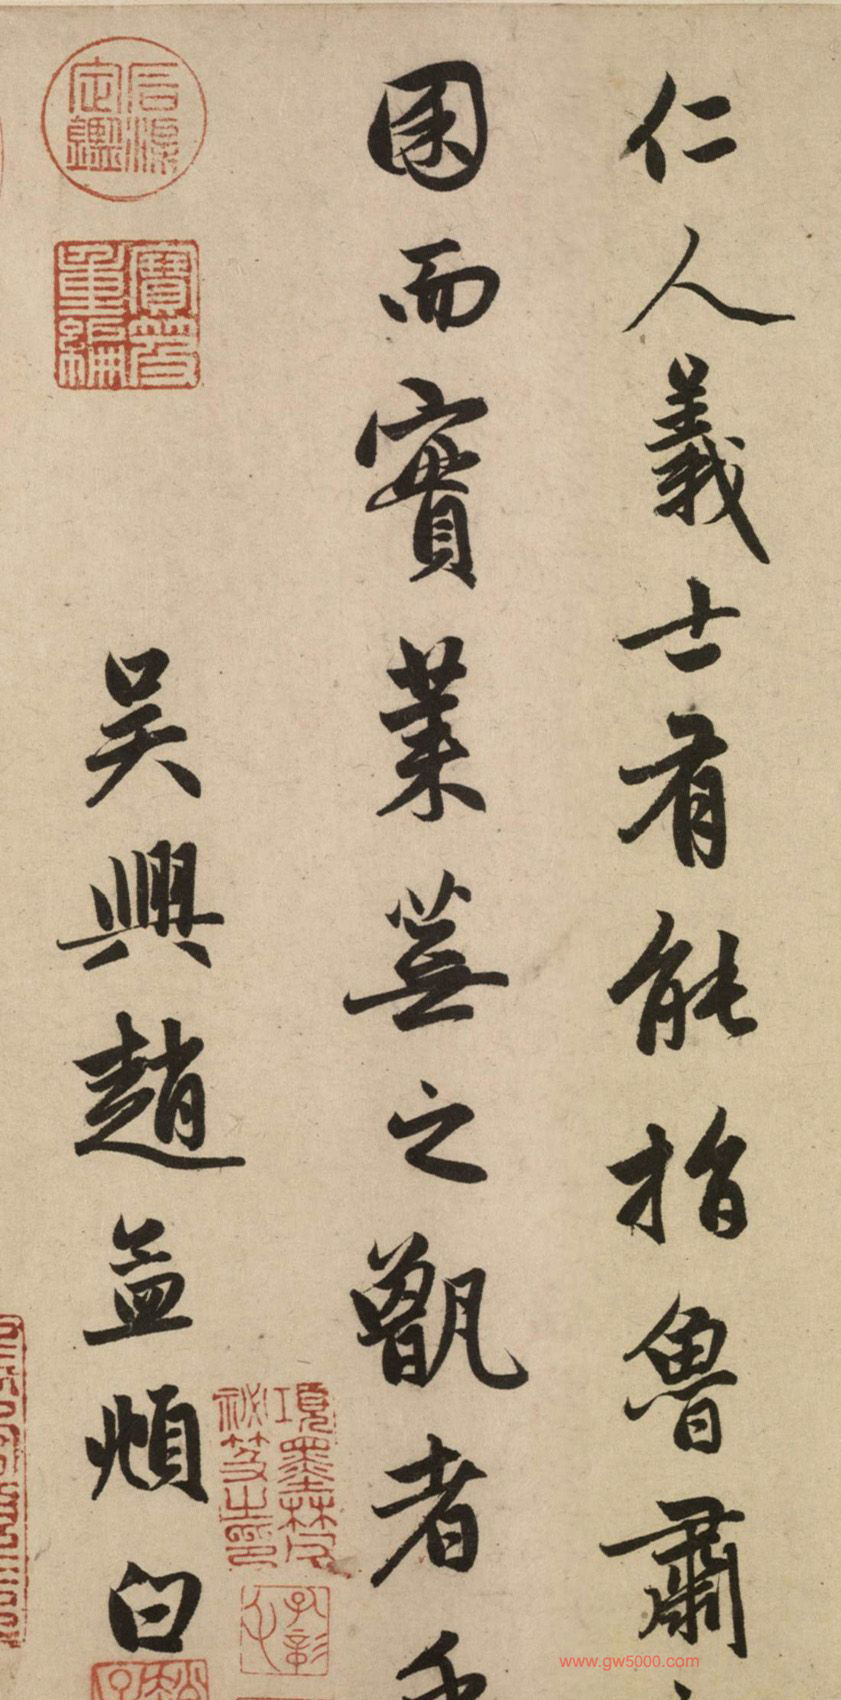 仁人義士有能指魯肅
囷而實萊蕪之甑者
吳興趙孟頫白
石渠定鑑
寶笈重編
項墨林父祕笈之印
www.gw5000.com